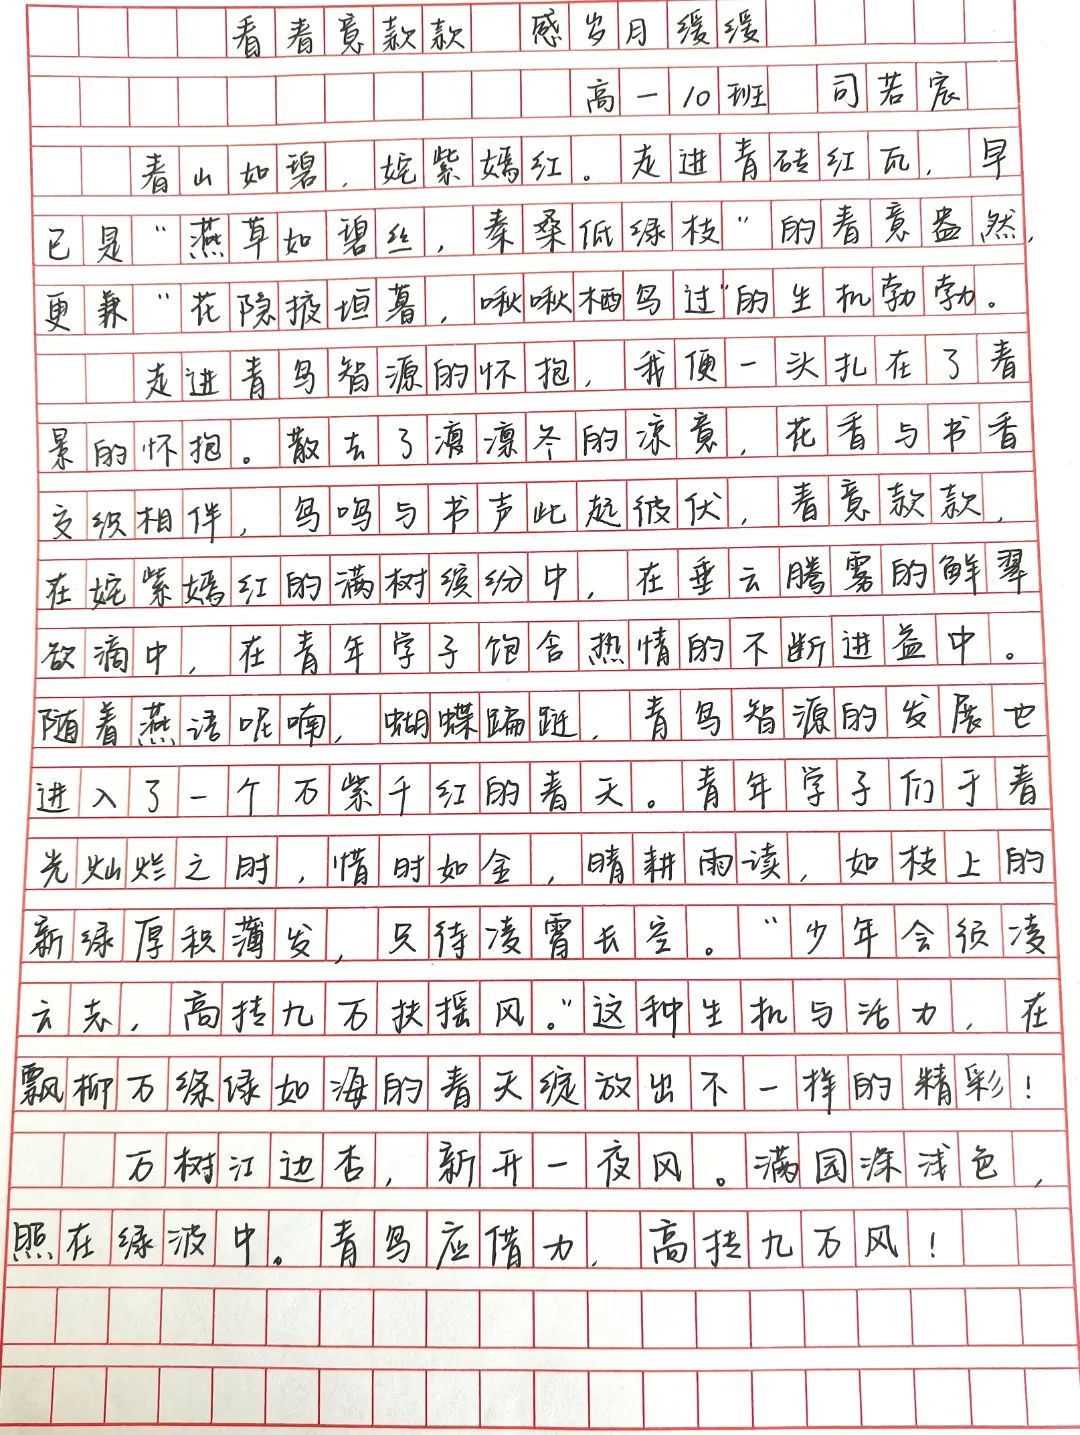 看春意款款 感岁月缓缓
高一10班 司若宸
春山如碧，姹紫嫣红。走进青砖红瓦，早
已是“燕草如碧丝，秦桑低绿枝”的春意盎然，
更兼“花隐掖垣暮，啾啾栖鸟过”的生机勃勃。
走进青鸟智源的怀抱，我便一头扎在了春
景的怀抱。散去了凛凛冬的凉意，花香与书香
交织相伴，鸟鸣与书声此起彼伏，春意款款，
在姹紫嫣红的满树缤纷中，在垂云腾雾的鲜翠
欲滴中，在青年学子饱含热情的不断进益中。
随着燕语呢喃，蝴蝶蹁跹，青鸟智源的发展也
进入了一个万紫千红的春天。青年学子们于春
光灿烂之时，惜时如金，晴耕雨读，如枝上的
新绿厚积薄发，只待凌霄长空。“少年会须凌
云志，高抟九万扶摇风。”这种生机与活力，在
飘柳万绦绿如海的春天绽放出不一样的精彩！
万树江边杏，新开一夜风。满园深浅色，
照在绿波中。青鸟应借力，高抟九万风！